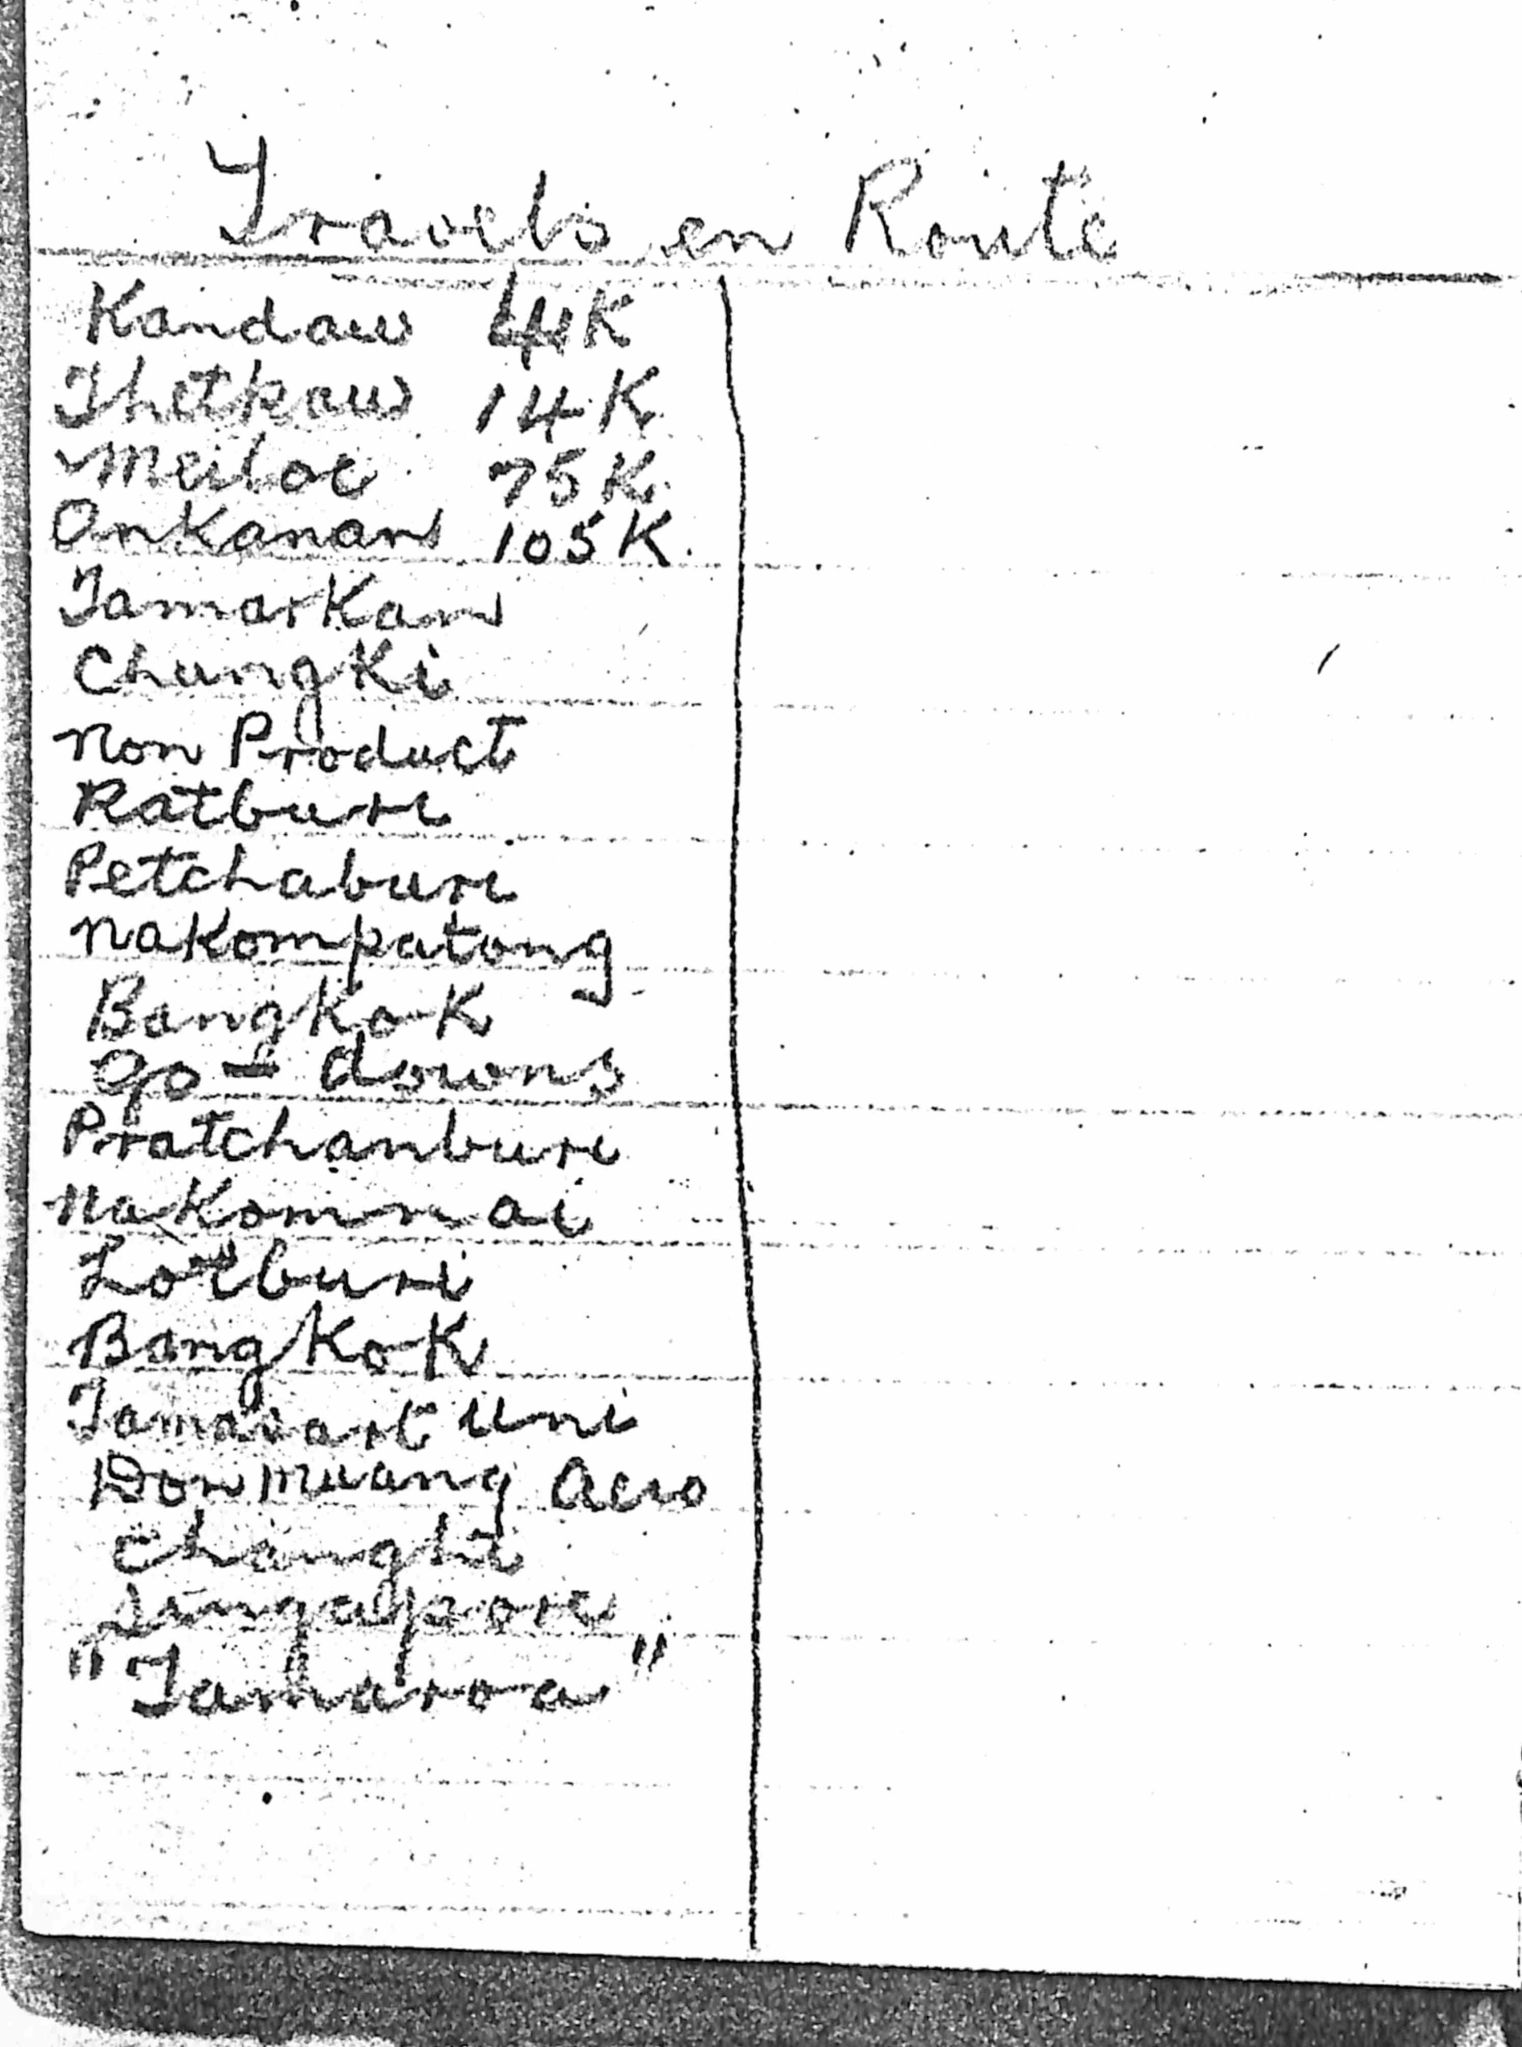 Travels en Route
Kandaw 4K
Thetkaw 14K
Meiloe 75K
Onkanan 105K.
Tamarkan
Chungki
Non Product
Ratburi
Petchaburi
Nakompatong
Bangkok
Go-downs
Pratchanburi
Nakomnai
Lotburi
Bangkok
Tamasart Uni
Don Muang Aero
Changhi
Singapore
"Tamaroa"